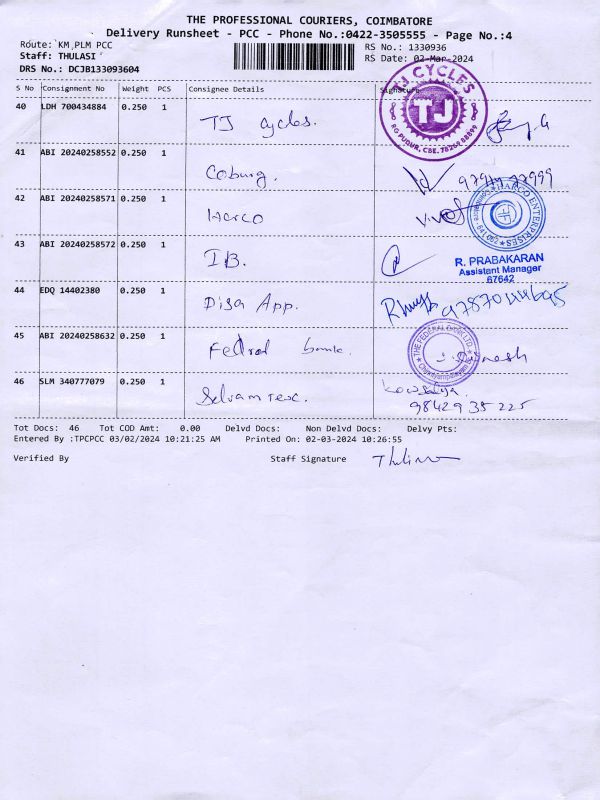 THE PROFESSIONAL COURIERS, COIMBATORE
Delivery Runsheet - PCC - Phone No.:0422-3505555 - Page No.:4
Route: KM,PLM PCC RS No.: 1330936
Staff: THULASI RS Date: 02-Mar-2024
DRS No.: DCJB133093604
S No Consignment No Weight PCS Consignee Details Signature
40 LDH 700434884 0.250 1 TJ Cycles.
TJ CYCLES TJ RG PUDUR, CBE. 78269 88899
41 ABI 20240258552 0.250 1 Coburg.
42 ABI 20240258571 0.250 1 Harco
HARCO ENTERPRISES
43 ABI 20240258572 0.250 1 IB.
R. PRABAKARAN
Assistant Manager
67642
44 EDQ 14402380 0.250 1 Disa App.
45 ABI 20240258632 0.250 1 Fedral bank.
THE FEDERAL BANK LTD.
46 SLM 340777079 0.250 1 Selvam Tex.
Kowsalya
9842935225
Tot Docs: 46 Tot COD Amt: 0.00 Delvd Docs: Non Delvd Docs: Delvy Pts:
Entered By :TPCPCC 03/02/2024 10:21:25 AM Printed On: 02-03-2024 10:26:55
Verified By Staff Signature